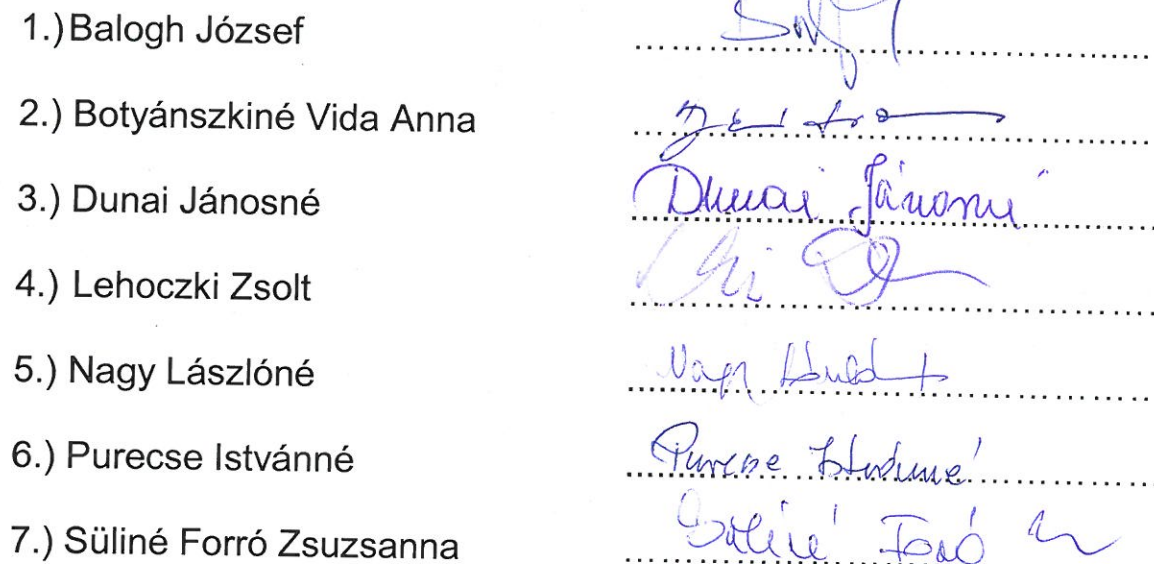 1.) Balogh József
2.) Botyánszkiné Vida Anna
3.) Dunai Jánosné Dunai Jánosné
4.) Lehoczki Zsolt
5.) Nagy Lászlóné Nagy
6.) Purecse Istvánné Purecse Istvánné
7.) Süliné Forró Zsuzsanna Süliné Forró